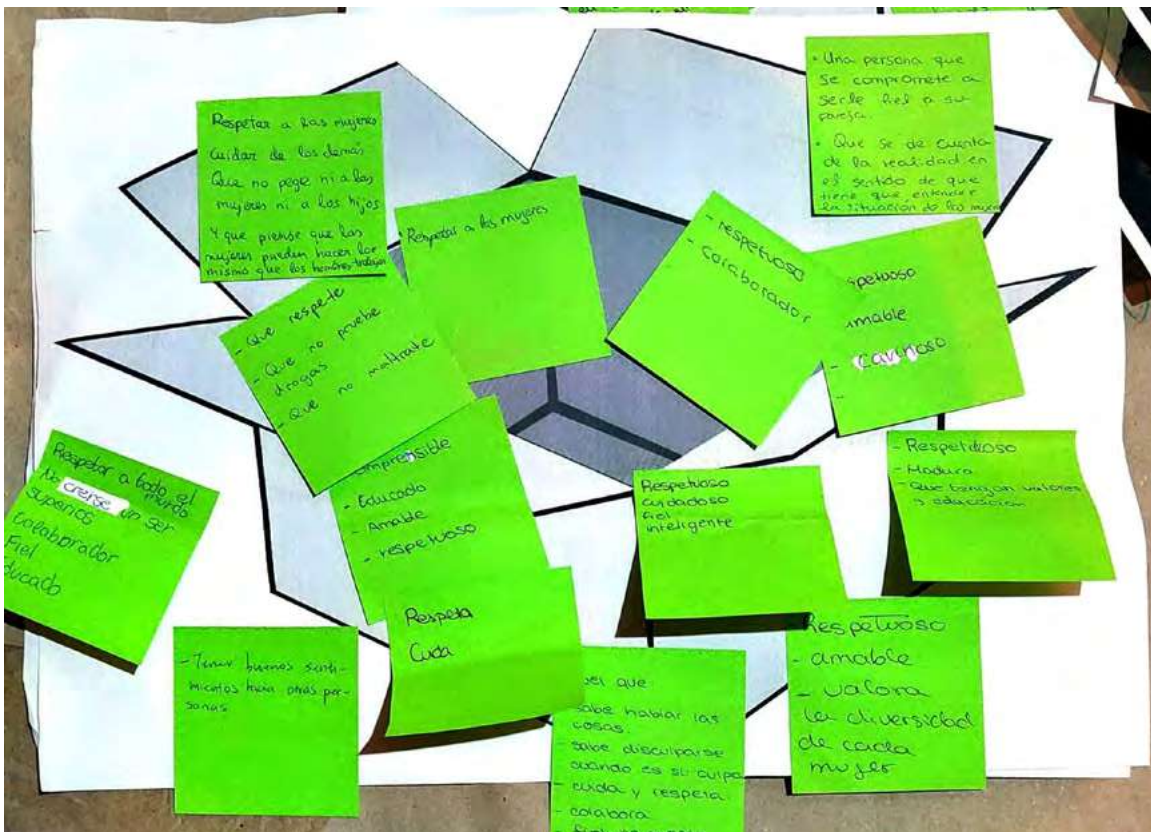 Respetar a las mujeres
Cuidar de los demás
Que no pege ni a las
mujeres ni a los hijos
Y que piense que las
mujeres pueden hacer lo
mismo que los hombres trabajar
Respetar a las mujeres
- respetuoso
- Colaborador
• Una persona que
se compromete a
serle fiel a su
pareja.
• Que se de cuenta
de la realidad en
el sentido de que
tiene que entender
la situación de las
- Que respete
- Que no pruebe
drogas
- Que no maltrate
- cariñoso
Respetar a todo el
mundo
No crerse un ser
superios
Colaborador
Fiel
- Educado
- Amable
- respetuoso
Respetuoso
cuidadoso
Fiel
inteligente
- Respetuoso
- Maduro
- Que tengan valores
y educación
Respeta
Cuida
- Tener buenos senti-
mientos hacia otras per-
sonas
que
- sabe hablar las
cosas.
- sabe disculparse
cuando es su culpa
- cuida y respeta
- colabora
Respetuoso
- amable
- valora
la diversidad
de cada
mujer